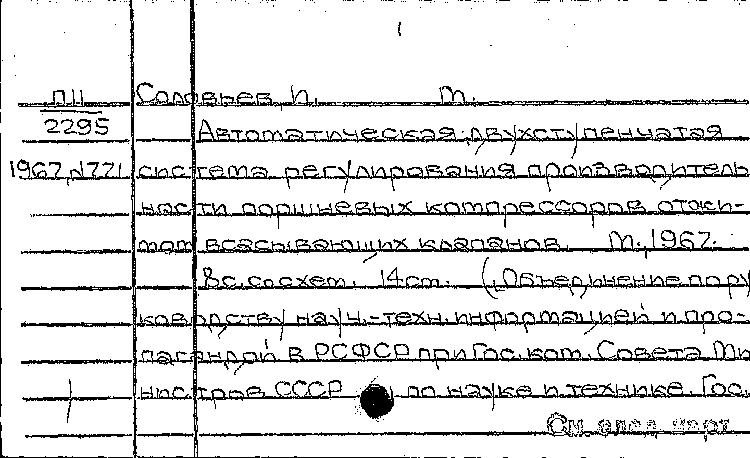 1
П11 Соловьев, И. М.
2295 Автоматическая двухступенчатая
1967, №1721 система регулирования производитель
ности поршневых компрессоров отжи-
мом всасывающих клапанов. М., 1967.
8 с. со схем. 14 см. (Объединение по ру
ководству науч.-техн. информацией и про-
пагандой в РСФСР при Гос. ком. Совета Ми
нистров СССР по науке и технике. Гос.
См. след. карт.